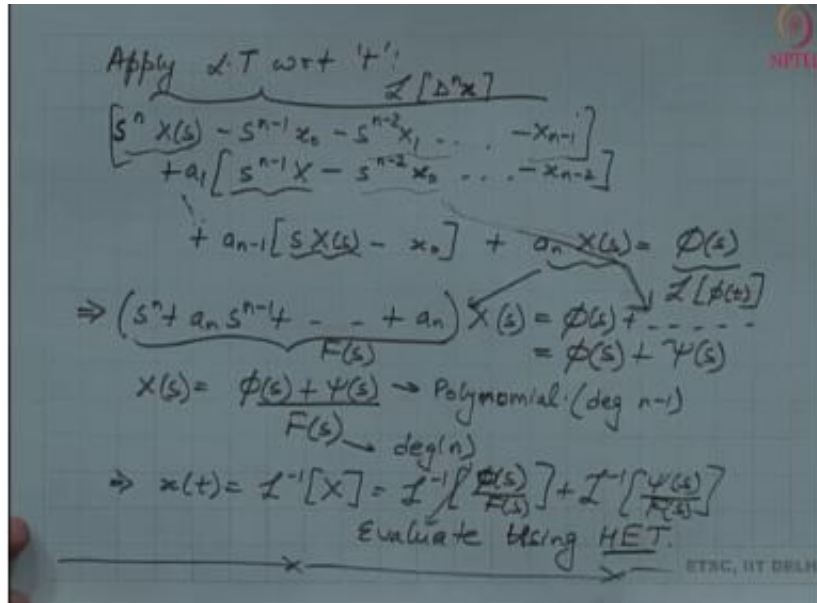 Apply L.T wrt 't':
NPTEL
L[Dⁿx]
[sⁿ X(s) - sⁿ⁻¹ x₀ - sⁿ⁻² x₁ . . . . - xₙ₋₁]
+ a₁ [sⁿ⁻¹ X - sⁿ⁻² x₀ . . . . - xₙ₋₂]
+ aₙ₋₁ [s X(s) - x₀] + aₙ X(s) = Φ(s)
L[φ(t)]
⇒ (sⁿ + aₙ sⁿ⁻¹ + - - - + aₙ) X(s) = Φ(s) + - - - - -
F(s)
= Φ(s) + Ψ(s)
X(s) = Φ(s) + Ψ(s) / F(s) → Polynomial. (deg n-1)
→ deg(n)
⇒ x(t) = L⁻¹[X] = L⁻¹[Φ(s)/F(s)] + L⁻¹[Ψ(s)/F(s)]
Evaluate Using HET.
ETSC, IIT DELH